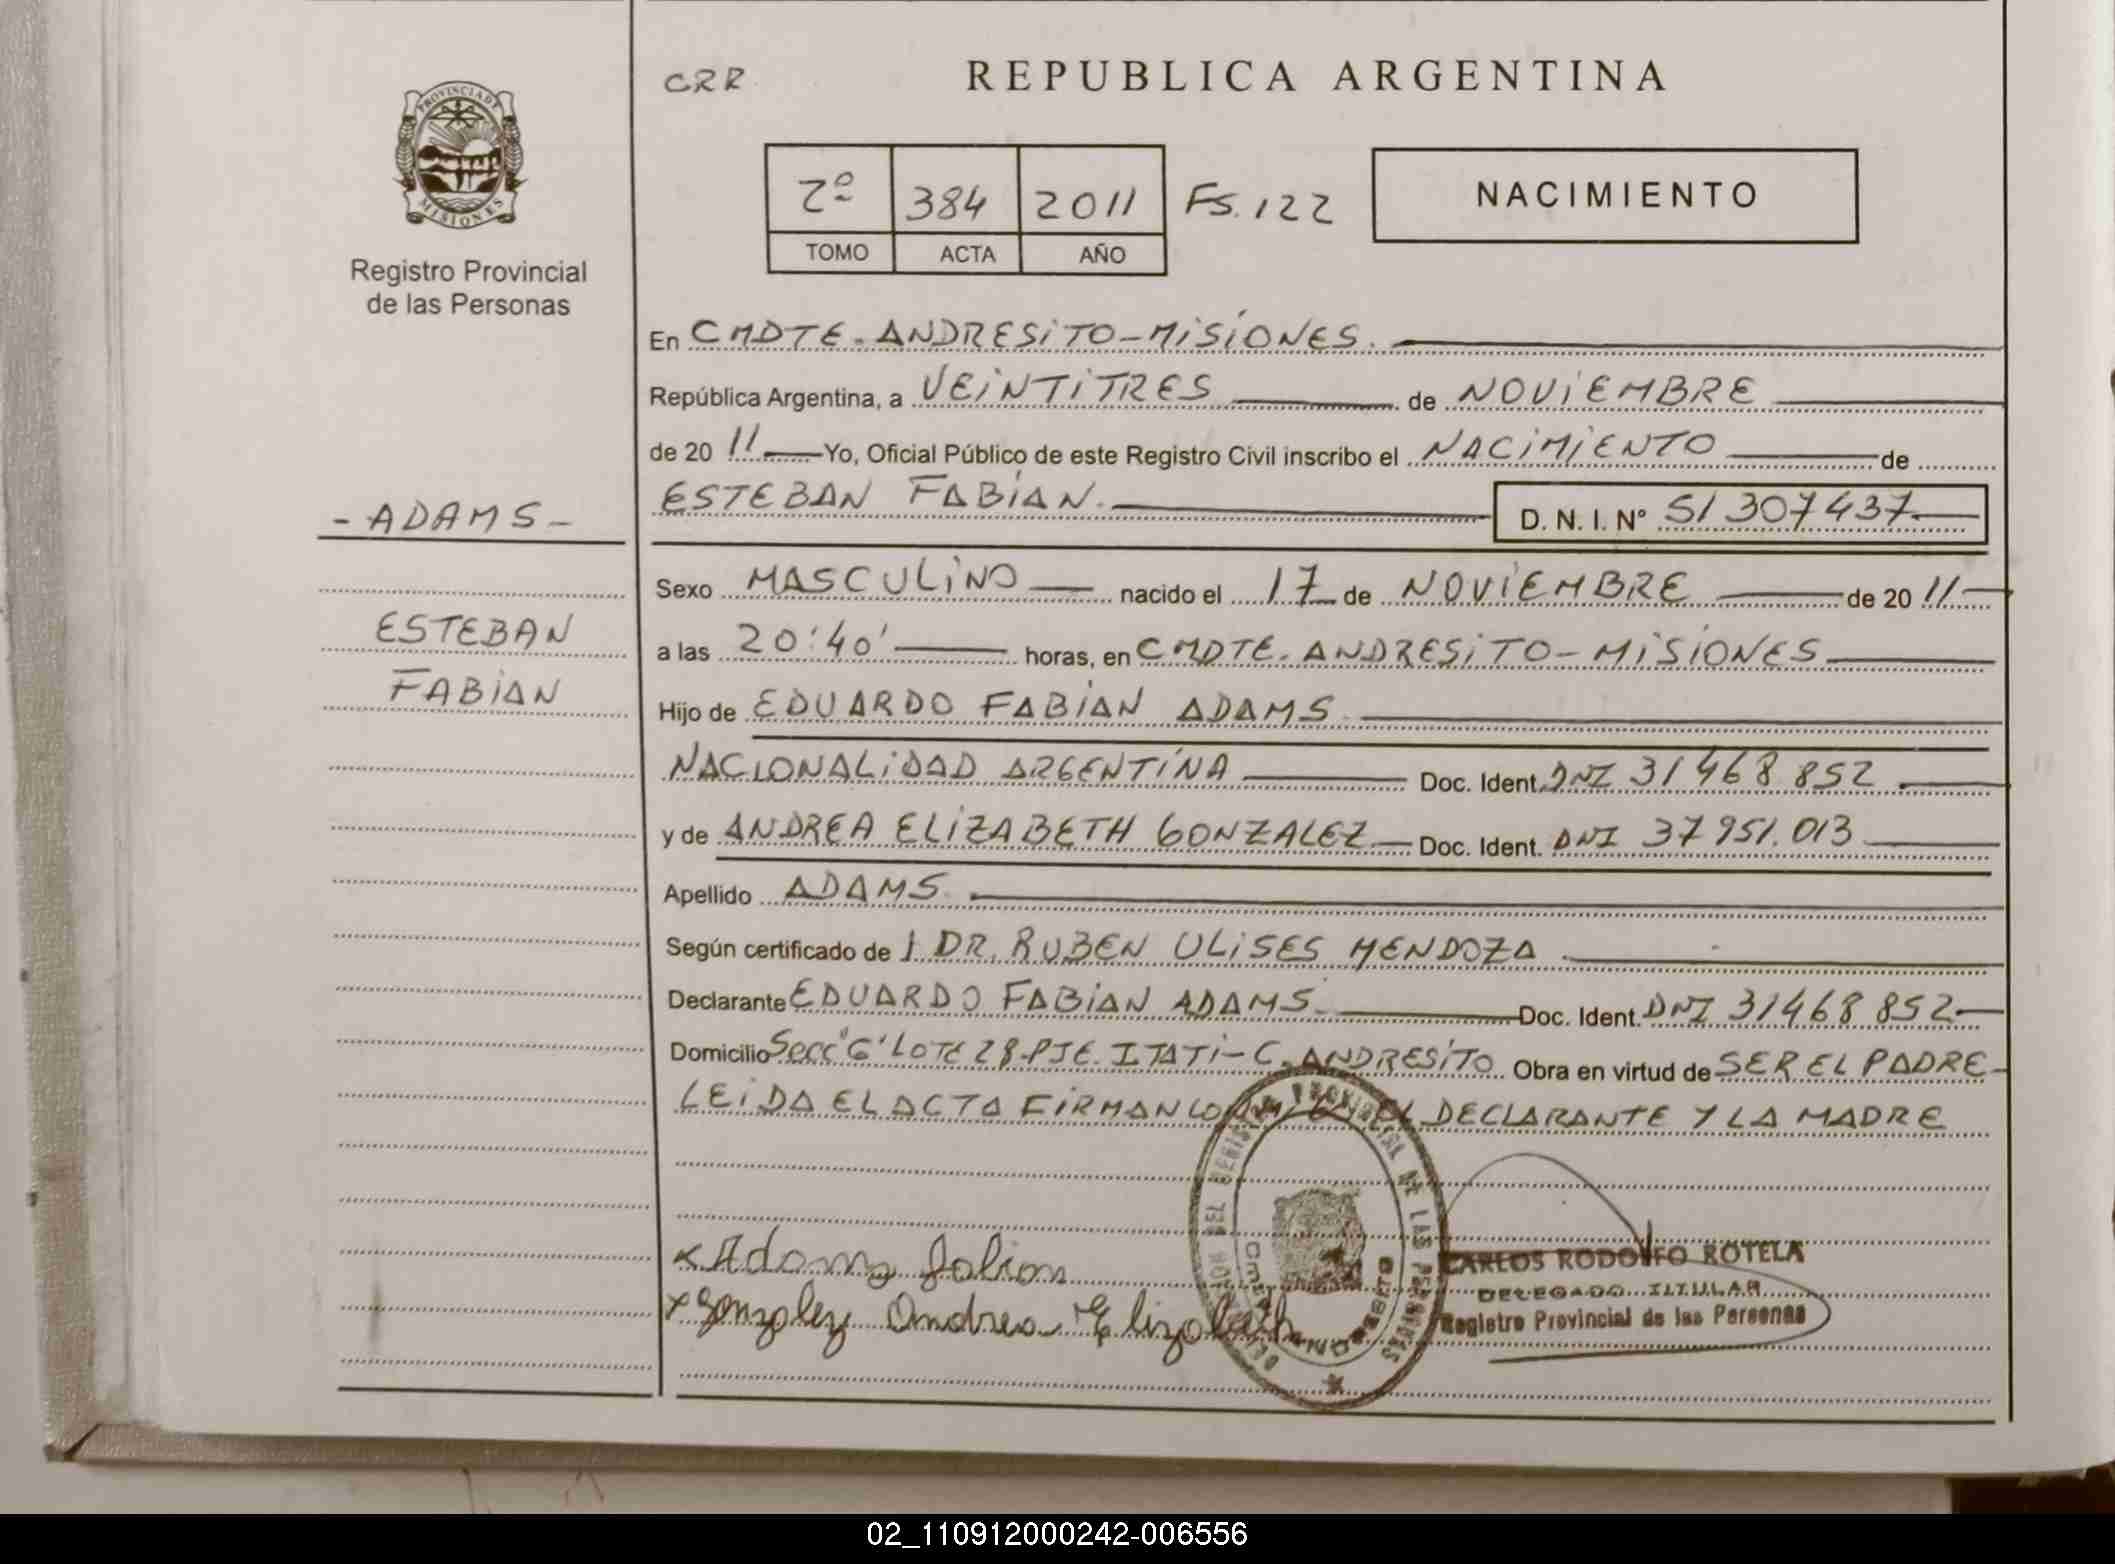 CRR
REPUBLICA ARGENTINA
PROVINCIA DE
MISIONES
Registro Provincial
de las Personas
2º 384 2011 FS. 122
TOMO ACTA AÑO
NACIMIENTO
En CMDTE. ANDRESITO-MISIONES.
República Argentina, a VEINTITRES de NOVIEMBRE
de 2011 Yo, Oficial Público de este Registro Civil inscribo el NACIMIENTO de
ESTEBAN FABIAN. D. N. I. Nº 51 307437
- ADAMS -
ESTEBAN
FABIAN
Sexo MASCULINO nacido el 17 de NOVIEMBRE de 2011
a las 20:40' horas, en CMDTE. ANDRESITO-MISIONES
Hijo de EDUARDO FABIAN ADAMS
NACIONALIDAD ARGENTINA Doc. Ident. DNI 31468 852
y de ANDREA ELIZABETH GONZALEZ Doc. Ident. DNI 37951.013
Apellido ADAMS
Según certificado de 1 DR. RUBEN ULISES MENDOZA
Declarante EDUARDO FABIAN ADAMS Doc. Ident. DNI 31468 852
Domicilio Secc "G" LOTE 28-PJE. ITATI-C. ANDRESITO Obra en virtud de SER EL PADRE
LEIDA EL ACTA FIRMAN EL DECLARANTE Y LA MADRE
x Adams Fabian
x Gonzalez Andrea Elizabeth
DEL REGISTRO PROVINCIAL DE LAS PERSONAS
CARLOS RODOLFO ROTELA
DELEGADO TITULAR
Registro Provincial de las Personas
02_110912000242-006556